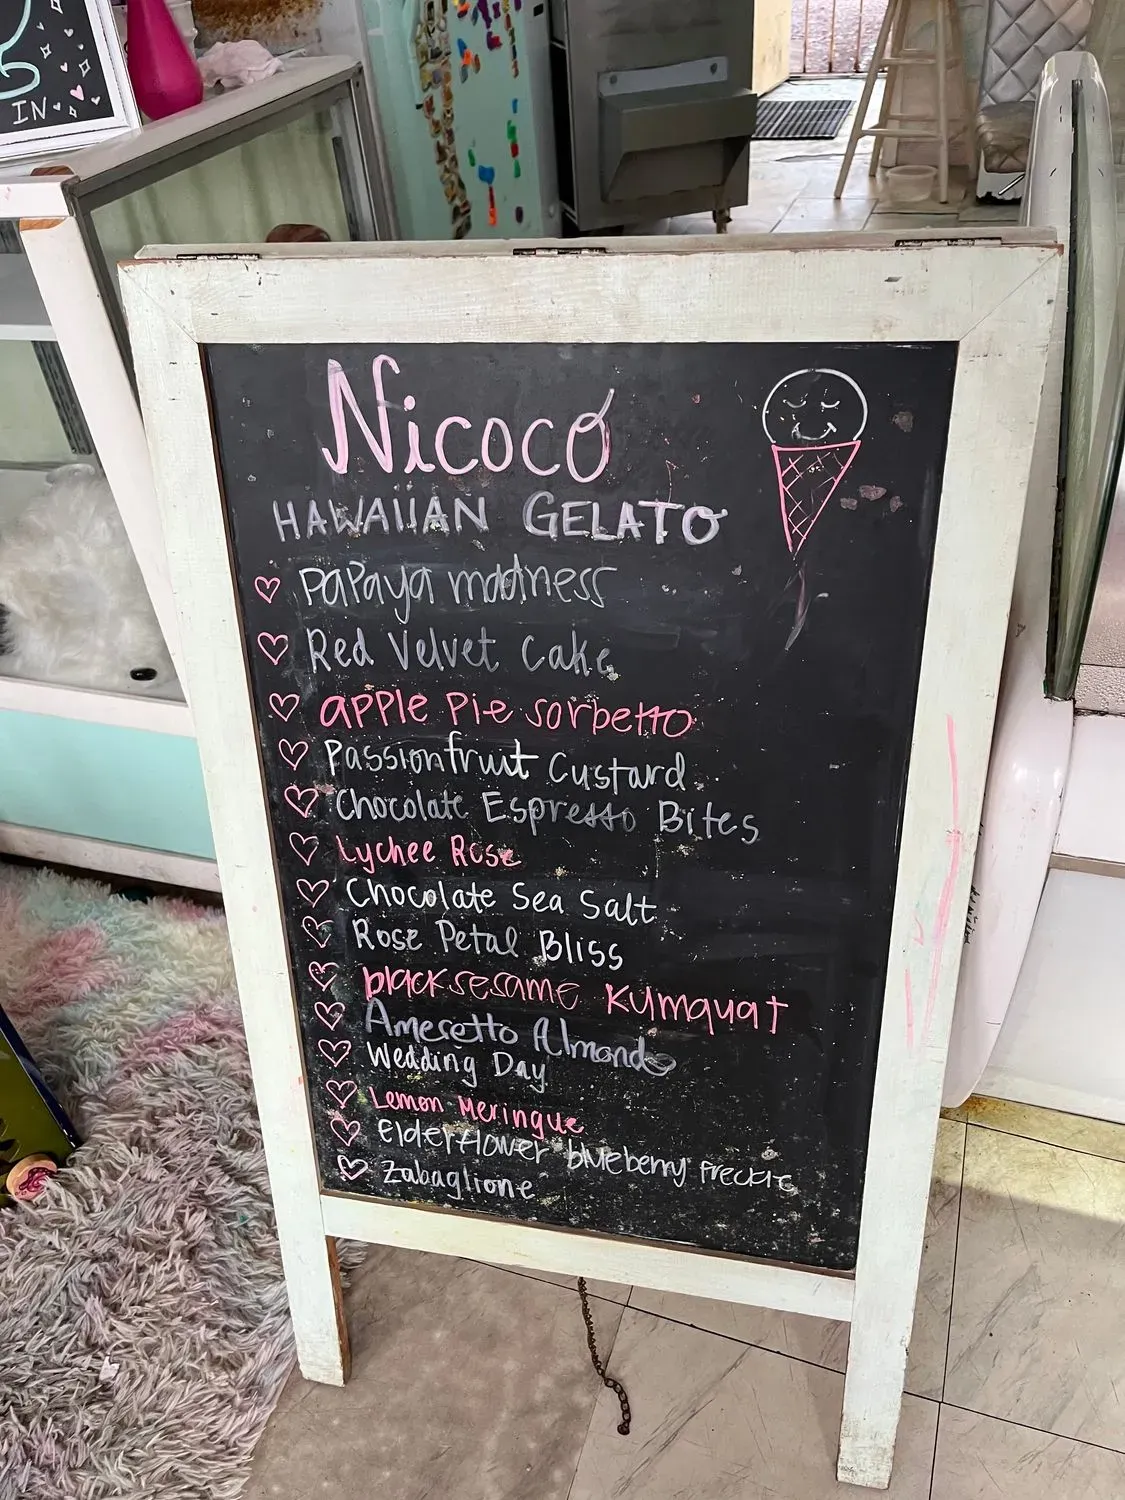 IN
Nicoco
HAWAIIAN GELATO
Papaya madness
Red Velvet Cake
apple pie sorbetto
Passionfruit Custard
Chocolate Espresso Bites
Lychee Rose
Chocolate Sea Salt
Rose Petal Bliss
black sesame kumquat
Ameretto Almond
Wedding Day
Lemon Meringue
elderflower blueberry freckle
Zabaglione